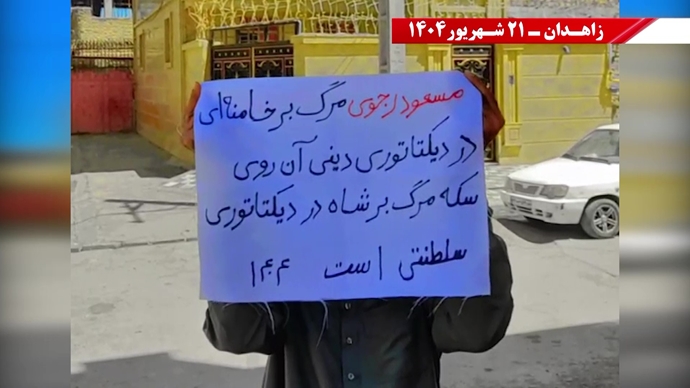 زاهدان ــ ۲۱ شهریور ۱۴۰۴
مسعود رجوی مرگ بر خامنه‌ای
در دیکتاتوری دینی آن روی
سکه مرگ بر شاه در دیکتاتوری
سلطنتی است ۱۴۰۴